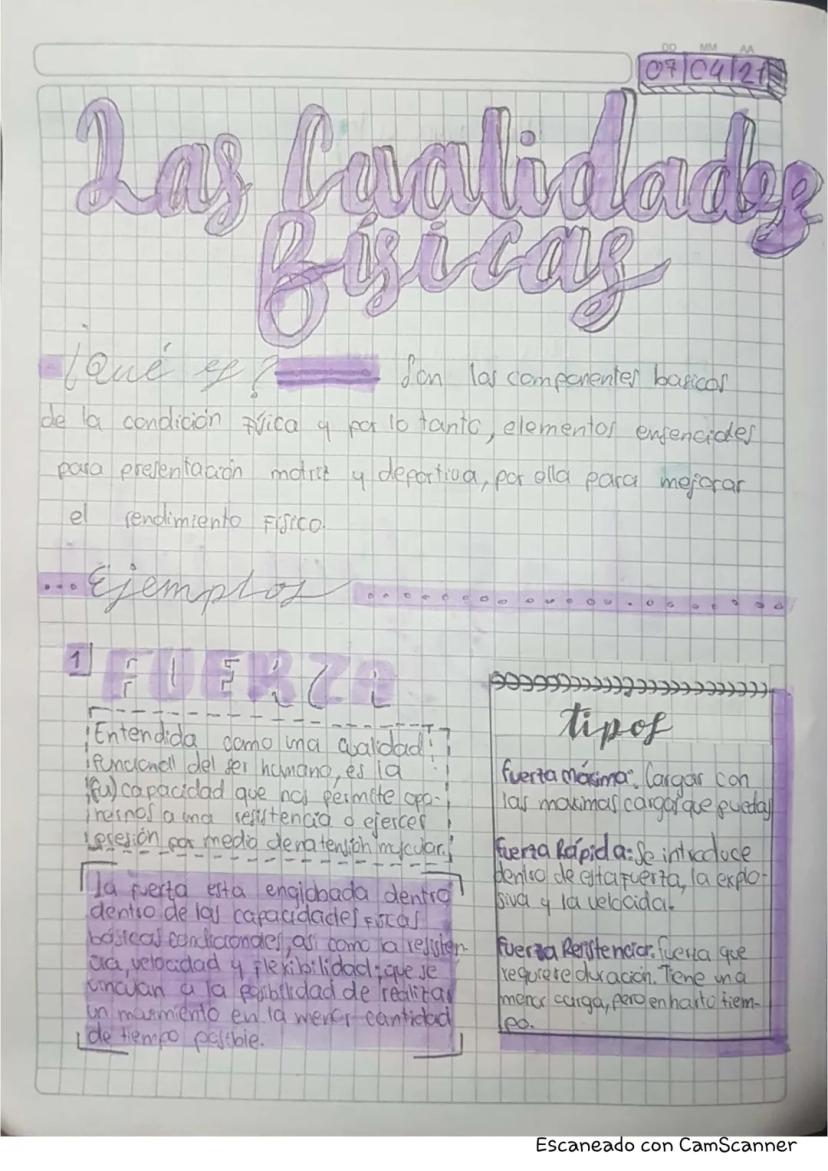 DD MM AA
07 04 21
Las Cualidades
Físicas
¿Qué es? Son los componentes basicos
de la condición Física y por lo tanto, elementos ensenciales
para presentación motriz y deportiva, por ella para mejorar
el rendimiento Físico.
Ejemplos
1 FUERZA
Entendida como una cualidad
funcional del ser humano, es la
(fu) capacidad que nos permite opo-
nernos a una resistencia o ejercer
presión por medio de una tensión muscular.
la fuerza esta englobada dentro
dentro de las capacidades Físicas
básicas condicionales, asi como la resisten-
cia, velocidad y flexibilidad; que se
vinculan a la posibilidad de realizar
un movimiento en la menor cantidad
de tiempo posible.
tipos
fuerza máxima: Cargar con
las maximas cargas que puedas
fuerza Rápida: Se introduce
dentro de esta fuerza, la explo-
siva y la velocida.
fuerza Resistencia: fuerza que
requiere duración. Tiene una
menor carga, pero en harto tiem-
po.
Escaneado con CamScanner